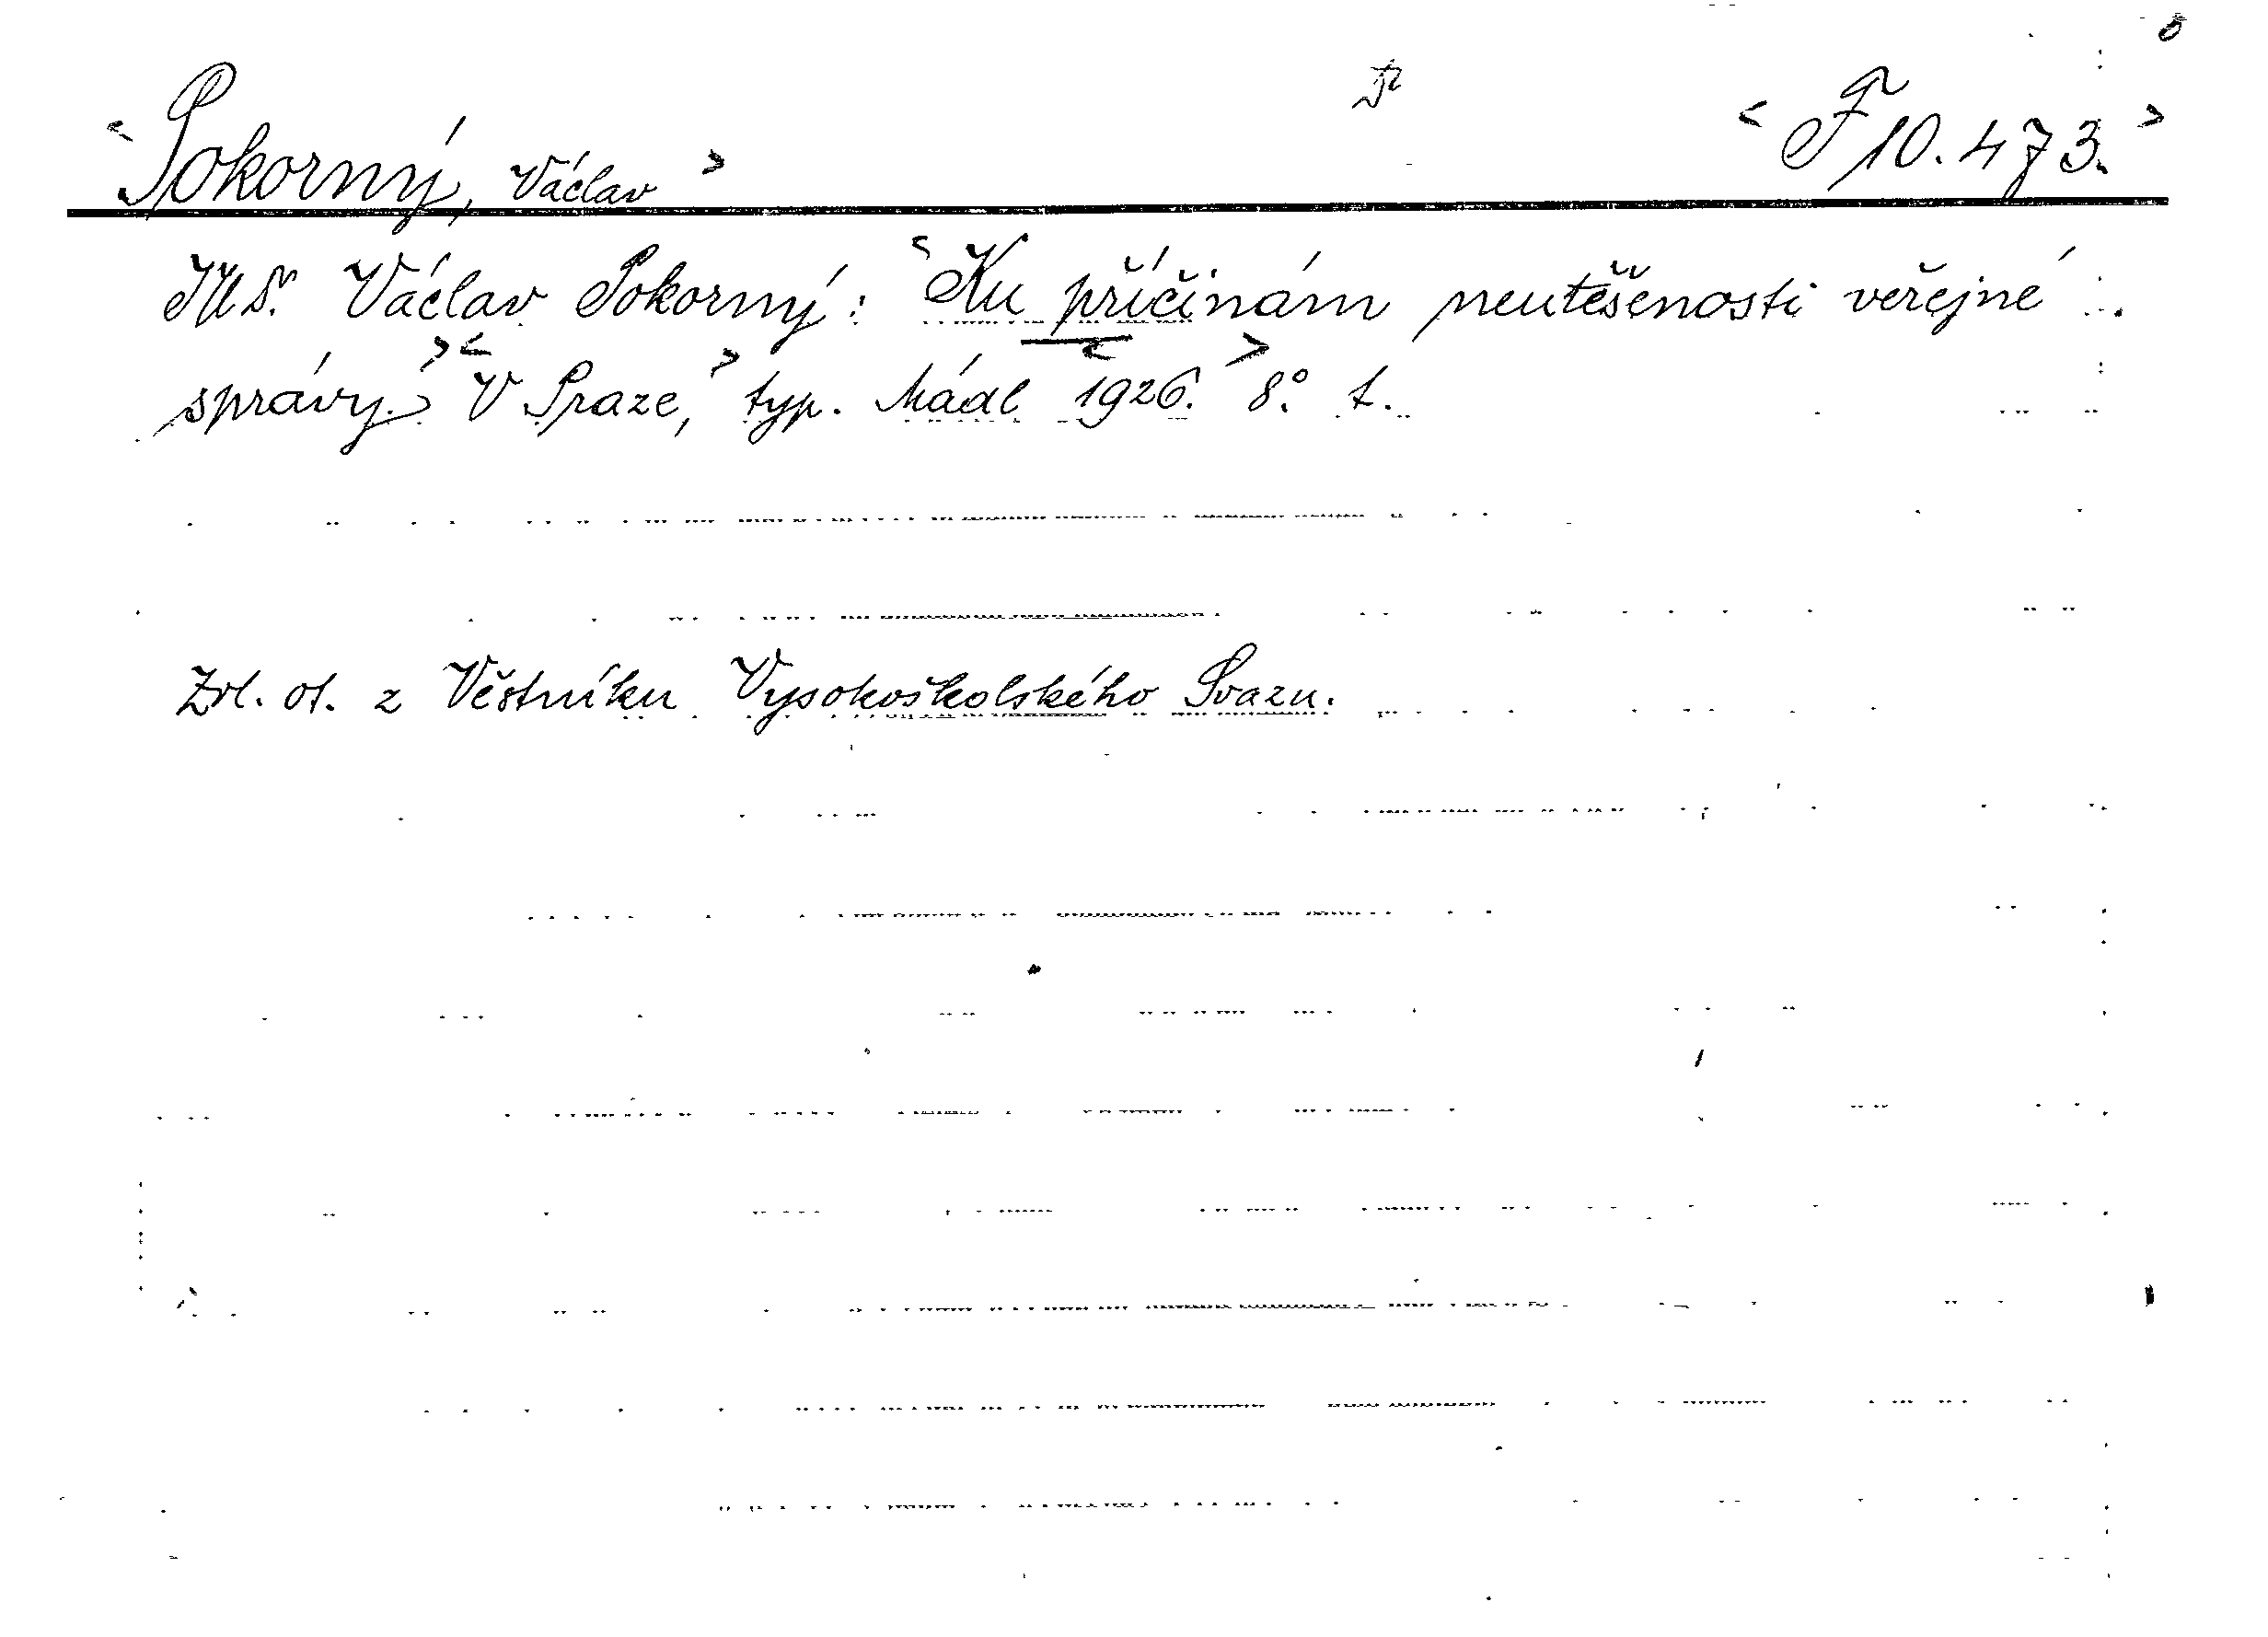 <Pokorný, Václav> <F 10.473.>
JUDr. Václav Pokorný: <Ku příčinám neutěšenosti veřejné
správy.> <V Praze,> typ. Mádl <1926.> 8°. t.
Zvl. ot. z Věstníku Vysokoškolského Svazu.